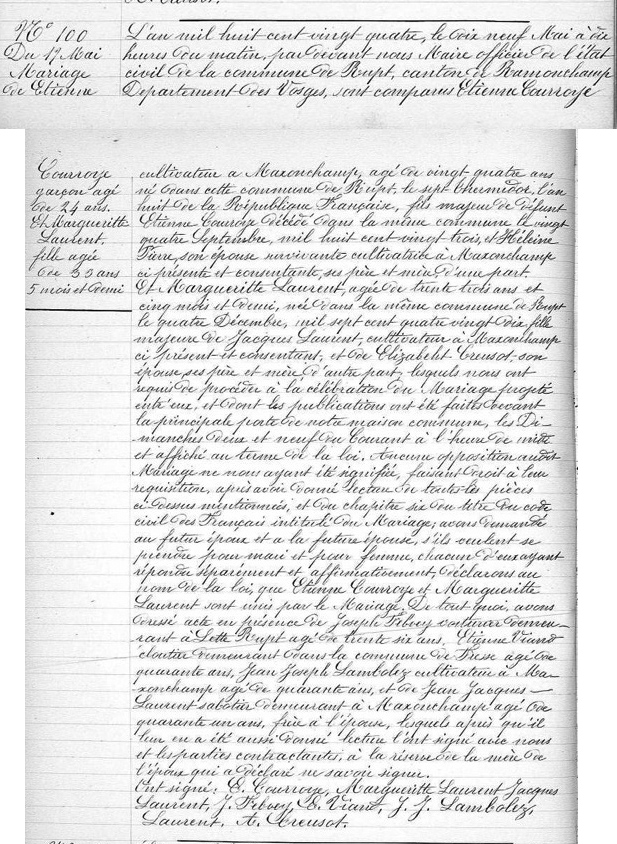 N° 100
Du 19 Mai
Mariage
de Etienne
L'an mil huit cent vingt quatre, le dix neuf Mai à dix
heures du matin, par devant nous Maire officier de l'état
civil de la commune de Rupt, canton de Ramonchamp
Département des Vosges, sont comparus Etienne Courroye
Courroye
garçon agé
de 24 ans.
Et Margueritte
Laurent,
fille agée
de 33 ans
5 mois et demi
cultivateur à Maxonchamp, agé de vingt quatre ans
né dans cette commune de Rupt, le sept thermidor, l'an
huit de la République Française, fils majeur de défunt
Etienne Courroye décédé dans la même commune le vingt
quatre Septembre, mil huit cent vingt trois, et Hélène
son épouse survivante cultivatrice à Maxonchamp
ci présente et consentante, ses père et mère d'une part.
Et Margueritte Laurent, agée de trente trois ans et
cinq mois et demi, née dans la même commune de Rupt
le quatre Décembre, mil sept cent quatre vingt dix, fille
majeure de Jacques Laurent, cultivateur à Maxonchamp
ci présent et consentant, et de Elizabeht Creusot, son
épouse, ses père et mère d'autre part, lesquels nous ont
requis de procéder à la célébration du Mariage projeté
entr'eux, et dont les publications ont été faites devant
la principale porte de notre maison commune, les Di-
manches deux et neuf du Courant à l'heure de midi
et affiché au terme de la loi. Aucune opposition audit
Mariage ne nous ayant été signifiée, faisant droit à leur
requisition, après avoir donné lecture de toutes les pièces
ci dessus mentionnés, et du chapitre six du titre du code
civil des Français intitulé du Mariage, avons demandé
au futur époux et a la future épouse, s'ils veulent se
prendre pour mari et pour femme, chacun d'eux ayant
répondu séparément et affirmativement, déclarons au
nom de la loi, que Etienne Courroye et Margueritte
Laurent sont unis par le Mariage. De tout quoi, avons
dressé acte en présence de Joseph Febvey voiturier demeu-
rant à Lette Rupt agé de trente six ans, Etienne Viant
cloutier demeurant dans la commune de Fresse agé de
quarante ans, Jean Joseph Lambolez cultivateur à Ma-
xonchamp agé de quarante ans, et de Jean Jacques
Laurent sabotier demeurant à Maxonchamp agé de
quarante un ans, frère à l'épouse, lesquels après qu'il
leur en a été aussi donné lecture l'ont signé avec nous
et les parties contractantes, à la réserve de la mère de
l'époux qui a déclaré ne savoir signer.
Ont signé: E. Courroye, Margueritte Laurent Jacques
Laurent, J. Febvey, E. Viant, J. J. Lambolez,
Laurent, A. Creusot.